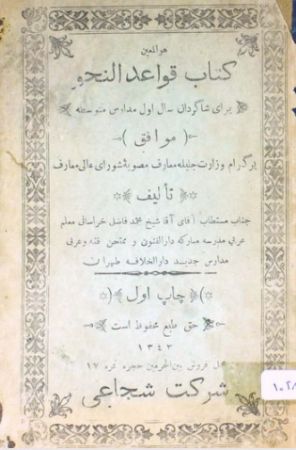 هوالمعین
کتاب قواعد النحو
برای شاگردان سال اول مدارس متوسطه
موافق
پرگرام وزارت جلیله معارف مصوبهٔ شورای عالی معارف
تألیف
جناب مستطاب آقای آقا شیخ محمد فاضل خراسانی معلم
عربی مدرسه مبارکه دارالفنون و ممتحن فقه و عربی
مدارس جدید دارالخلافه طهران
چاپ اول
حق طبع محفوظ است
۱۳۴۳
محل فروش بین‌الحرمین حجره نمره ۱۷
شرکت شجاعی